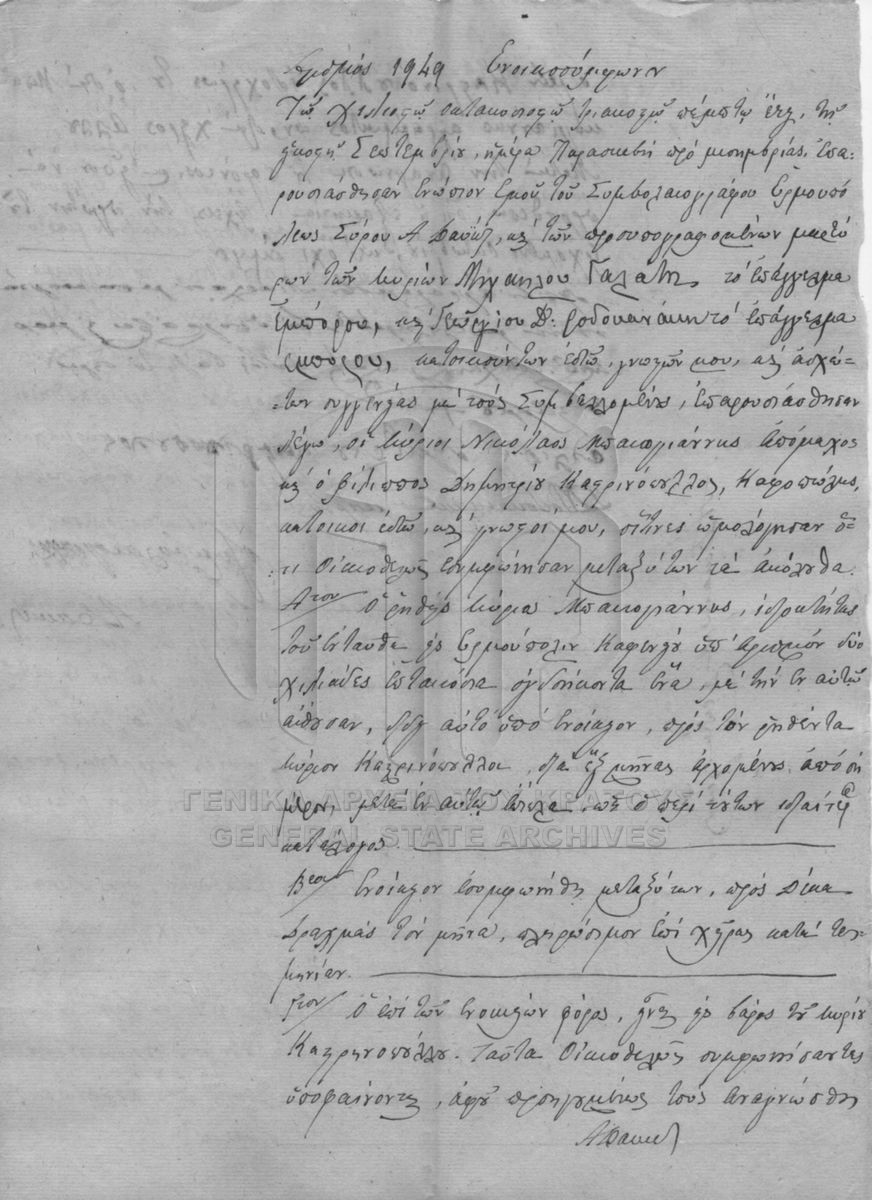 Ἀριθμὸς 1949 Ἐνοικοσύμφωνον
Τῷ χιλιοστῷ ὀκτακοσιοστῷ τριακοστῷ πέμπτῳ ἔτει, τῇ
εἰκοστῇ Σεπτεμβρίου, ἡμέρᾳ Παρασκευῇ πρὸ μεσημβρίας, ἐπα-
ρουσιάσθησαν ἐνώπιον ἐμοῦ τοῦ Συμβολαιογράφου Ἑρμουπό
λεως Σύρου Α καὶ τῶν προσυπογραφομένων μαρτύ
ρων τῶν Κυρίων Μιχαήλου Γαλάτη, τὸ ἐπάγγελμα
ἐμπόρου, καὶ Γεωργίου Δ. Ροδοκανάκη τὸ ἐπάγγελμα
ἐμπόρου, κατοικούντων ἐδῶ, γνωστῶν μου, καὶ ἀσχέ-
των συγγενείας μὲ τοὺς Συμβαλλομένους, ἐπαρουσιάσθησαν
λέγω, οἱ Κύριοι Νικόλαος Μπακογιάννης ἀπόμαχος
καὶ ὁ Φίλιππος Δημητρίου Κατρινόπουλλος, Καφφοπώλης,
κάτοικοι ἐδῶ, καὶ γνωστοί μου, οἵτινες ὡμολόγησαν ὅ-
τι οἰκιοθελῶς ἐσυμφώνησαν μεταξύ των τὰ ἀκόλουθα.
Αον/ Ὁ ῥηθεὶς Κύριος Μπακογιάννης, ἰδιοκτήτης
τοῦ ἐνταῦθα εἰς Ἑρμούπολιν Καφενείου ὑπ' ἀριθμὸν δύο
χιλιάδες ἑπτακόσια ὀγδοήκοντα ἕνα, μὲ τὴν ἐν αὐτῷ
αἴθουσαν, δίδει αὐτὸ ὑπὸ ἐνοίκιον, πρὸς τὸν ῥηθέντα
Κύριον Κατρινόπουλλον, διὰ ἓξ μῆνας ἀρχομένους ἀπὸ σή
μερον, μετὰ ἐν αὐτῷ ἔπιπλα, ὡς ὁ περὶ τούτων ἰδιαίτερος
κατάλογος
Βον/ Ἐνοίκιον ἐσυμφωνήθη μεταξύ των, πρὸς Δέκα
δραχμὰς τὸν μῆνα, πληρώσιμον ἐπὶ χεῖρας κατὰ τρι-
μηνίαν.
Γον/ Ὁ ἐπὶ τῶν ἐνοικίων φόρος, εἶναι εἰς βάρος τοῦ Κυρίου
Κατρηνοπούλλου. Ταῦτα οἰκιοθελῶς συμφωνήσαντες
ὑποφαίνονται, ἀφοῦ προηγουμένως τοὺς ἀνεγνώσθη
ΓΕΝΙΚΑ ΑΡΧΕΙΑ ΤΟΥ ΚΡΑΤΟΥΣ
GENERAL STATE ARCHIVES